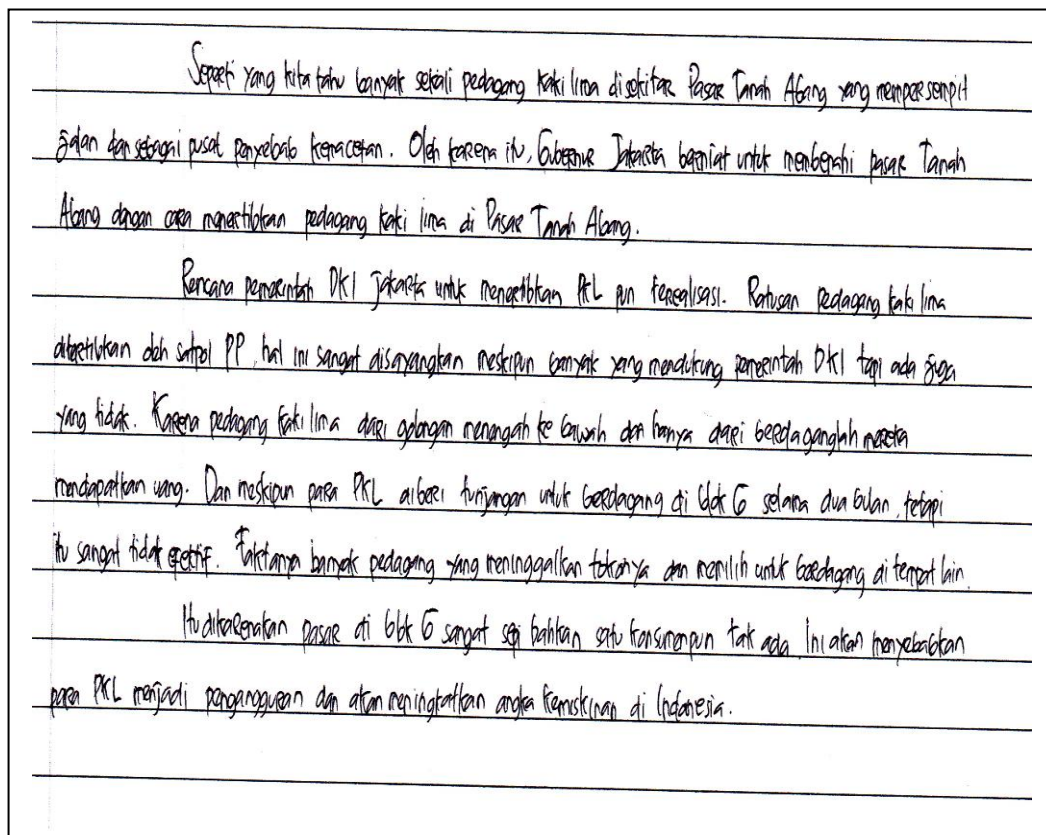 Seperti yang kita tahu banyak sekali pedagang kaki lima disekitar Pasar Tanah Abang yang mempersempit
jalan dan sebagai pusat penyebab kemacetan. Oleh karena itu, Gubernur Jakarta berniat untuk membenahi pasar Tanah
Abang dengan cara menertibkan pedagang kaki lima di Pasar Tanah Abang.
Rencana pemerintah DKI Jakarta untuk menertibkan PKL pun terealisasi. Ratusan pedagang kaki lima
ditertibkan oleh satpol PP, hal ini sangat disayangkan meskipun banyak yang mendukung pemerintah DKI tapi ada juga
yang tidak. Karena pedagang kaki lima dari golongan menengah ke bawah dan hanya dari berdaganglah mereka
mendapatkan uang. Dan meskipun para PKL diberi tunjangan untuk berdagang di blok G selama dua bulan, tetapi
itu sangat tidak efektif. Faktanya banyak pedagang yang meninggalkan tokonya dan memilih untuk berdagang di tempat lain.
Itu dikarenakan pasar di blok G sangat sepi bahkan satu konsumenpun tak ada. Ini akan menyebabkan
para PKL menjadi pengangguran dan akan meningkatkan angka kemiskinan di Indonesia.